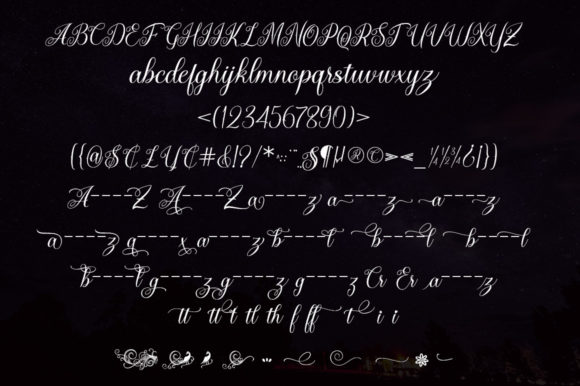 ABCDEFGHIJKLMNOPQRSTUVWXYZ
abcdefghijklmnopqrstuvwxyz
<(1234567890)>
({@$€£¥¢#&!?/*·:¨§¶µ®©><_¼½¾¿¡})
A----Z A----Z a----z a----z a----z
a----z g----x a----z b----t b----l b----l
b----t g----z g----z g----z Cr Er a----z
tt tt t tl th f ff t i i